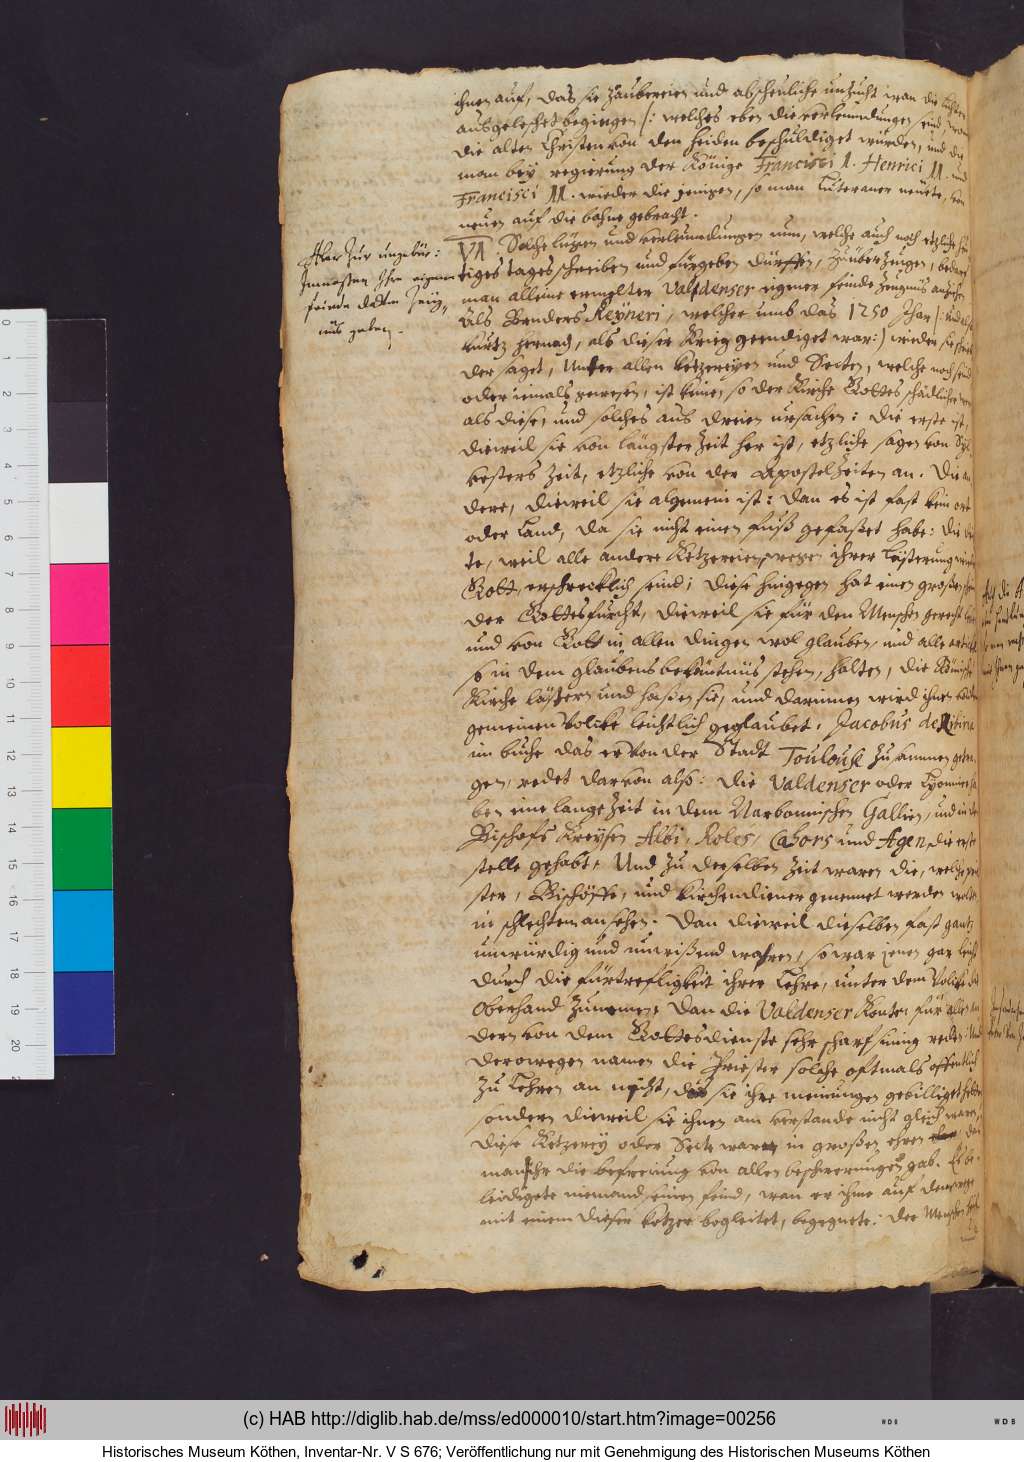 ihnen auf, das sie Zaubereien und abscheuliche unzucht wan die lichter
ausgeleschet begingen /: welches eben die verleumdungen sind,
die alten Christen von den heiden beschuldiget wurden, und die
man bey regierung der Könige Francisci I. Henrici II. und
Francisci II. wieder die jenigen, so man Luteraner nennte, von
neuen auf die bahne gebracht.
VI Solche lügen und verleumdungen nun, welche auch noch etzliche heu
tiges tages schreiben und fürgeben dürffen, Zuüberzeugen, bedarf
man alleine ermelter Valdenser eigener feinde Zeugnüs
Als Bruders Reyneri, welcher umb das 1250 Jhar
kurtz hernach, als dieser Krieg geendiget war:) wieder sie
der saget, Unter allen ketzereyen und Secten, welche noch seind
oder iemals gewesen, ist keine, so der Kirche Gottes schädlicher
als diese, und solches aus dreien ursachen: die erste ist,
dieweil sie von längster Zeit her ist, etzliche sagen von Syl
vesters Zeit, etzliche von der Apostel Zeiten an. Die an
dere, dieweil sie algemein ist: dan es ist fast kein ort
oder Land, da sie nicht einen fuß gefaßet habe: die drit
te, weil alle andere Ketzereien, wegen ihrer Lästerung wieder
Gott, erschrecklich seind; diese hingegen hat einen großen schein
der Gottesfurcht, dieweil sie für den Menschen gerecht leben
und von Gott in allen dingen wol glauben, und alle artickel
so in dem glaubensbekäntnüs stehen, halten, die Römische
Kirche lästern und haßen sie, und darinnen wird ihnen
gemeinen volcke leichtlich geglaubet. Jacobus de Ribiria
im buche das er von der Stadt Toulouse zusammen getra
gen, redet darvon also: die Valdenser oder Lyonnier ha
ben eine lange Zeit in dem Narbonnischen Gallien, und in den
Bischofs Kreysen Albi, Roles, Cahors und Agen, die erste
stelle gehabt, Und zu derselben Zeit waren die, welche prie
ster, Bischöffe, und kirchendiener genennet werden wolten
in schlechtem ansehen. Dan dieweil dieselben fast gantz
unwürdig und unwißend wahren, so war jenen gar leicht
durch die fürtrefligkeit ihrer Lehre, unter dem Volcke die
Oberhand Zunemen, dan die Valdenser konten für allen an
dern von dem Gottesdienste sehr scharfsinnig reden: Und
derowegen namen die Priester solche oftmals offentlich
Zu Lehren an nicht, das sie ihre meinungen gebilliget hetten
sondern dieweil sie ihnen am verstande nicht gleich waren,
diese Ketzerey oder Secte war in großen ehren das
man ihr die befreiung von allen beschwerungen gab. Es be
leidigete niemand seinen feind, wan er ihme auf dem wege
mit einem dieser ketzer begleitet, begegnete: der Menschen
Aber Zur ungebür:
Inmaßen Ihre eigene
feinde deßen Zeüg,,
nüs geben.
(c) HAB http://diglib.hab.de/mss/ed000010/start.htm?image=00256
Historisches Museum Köthen, Inventar-Nr. V S 676; Veröffentlichung nur mit Genehmigung des Historischen Museums Köthen